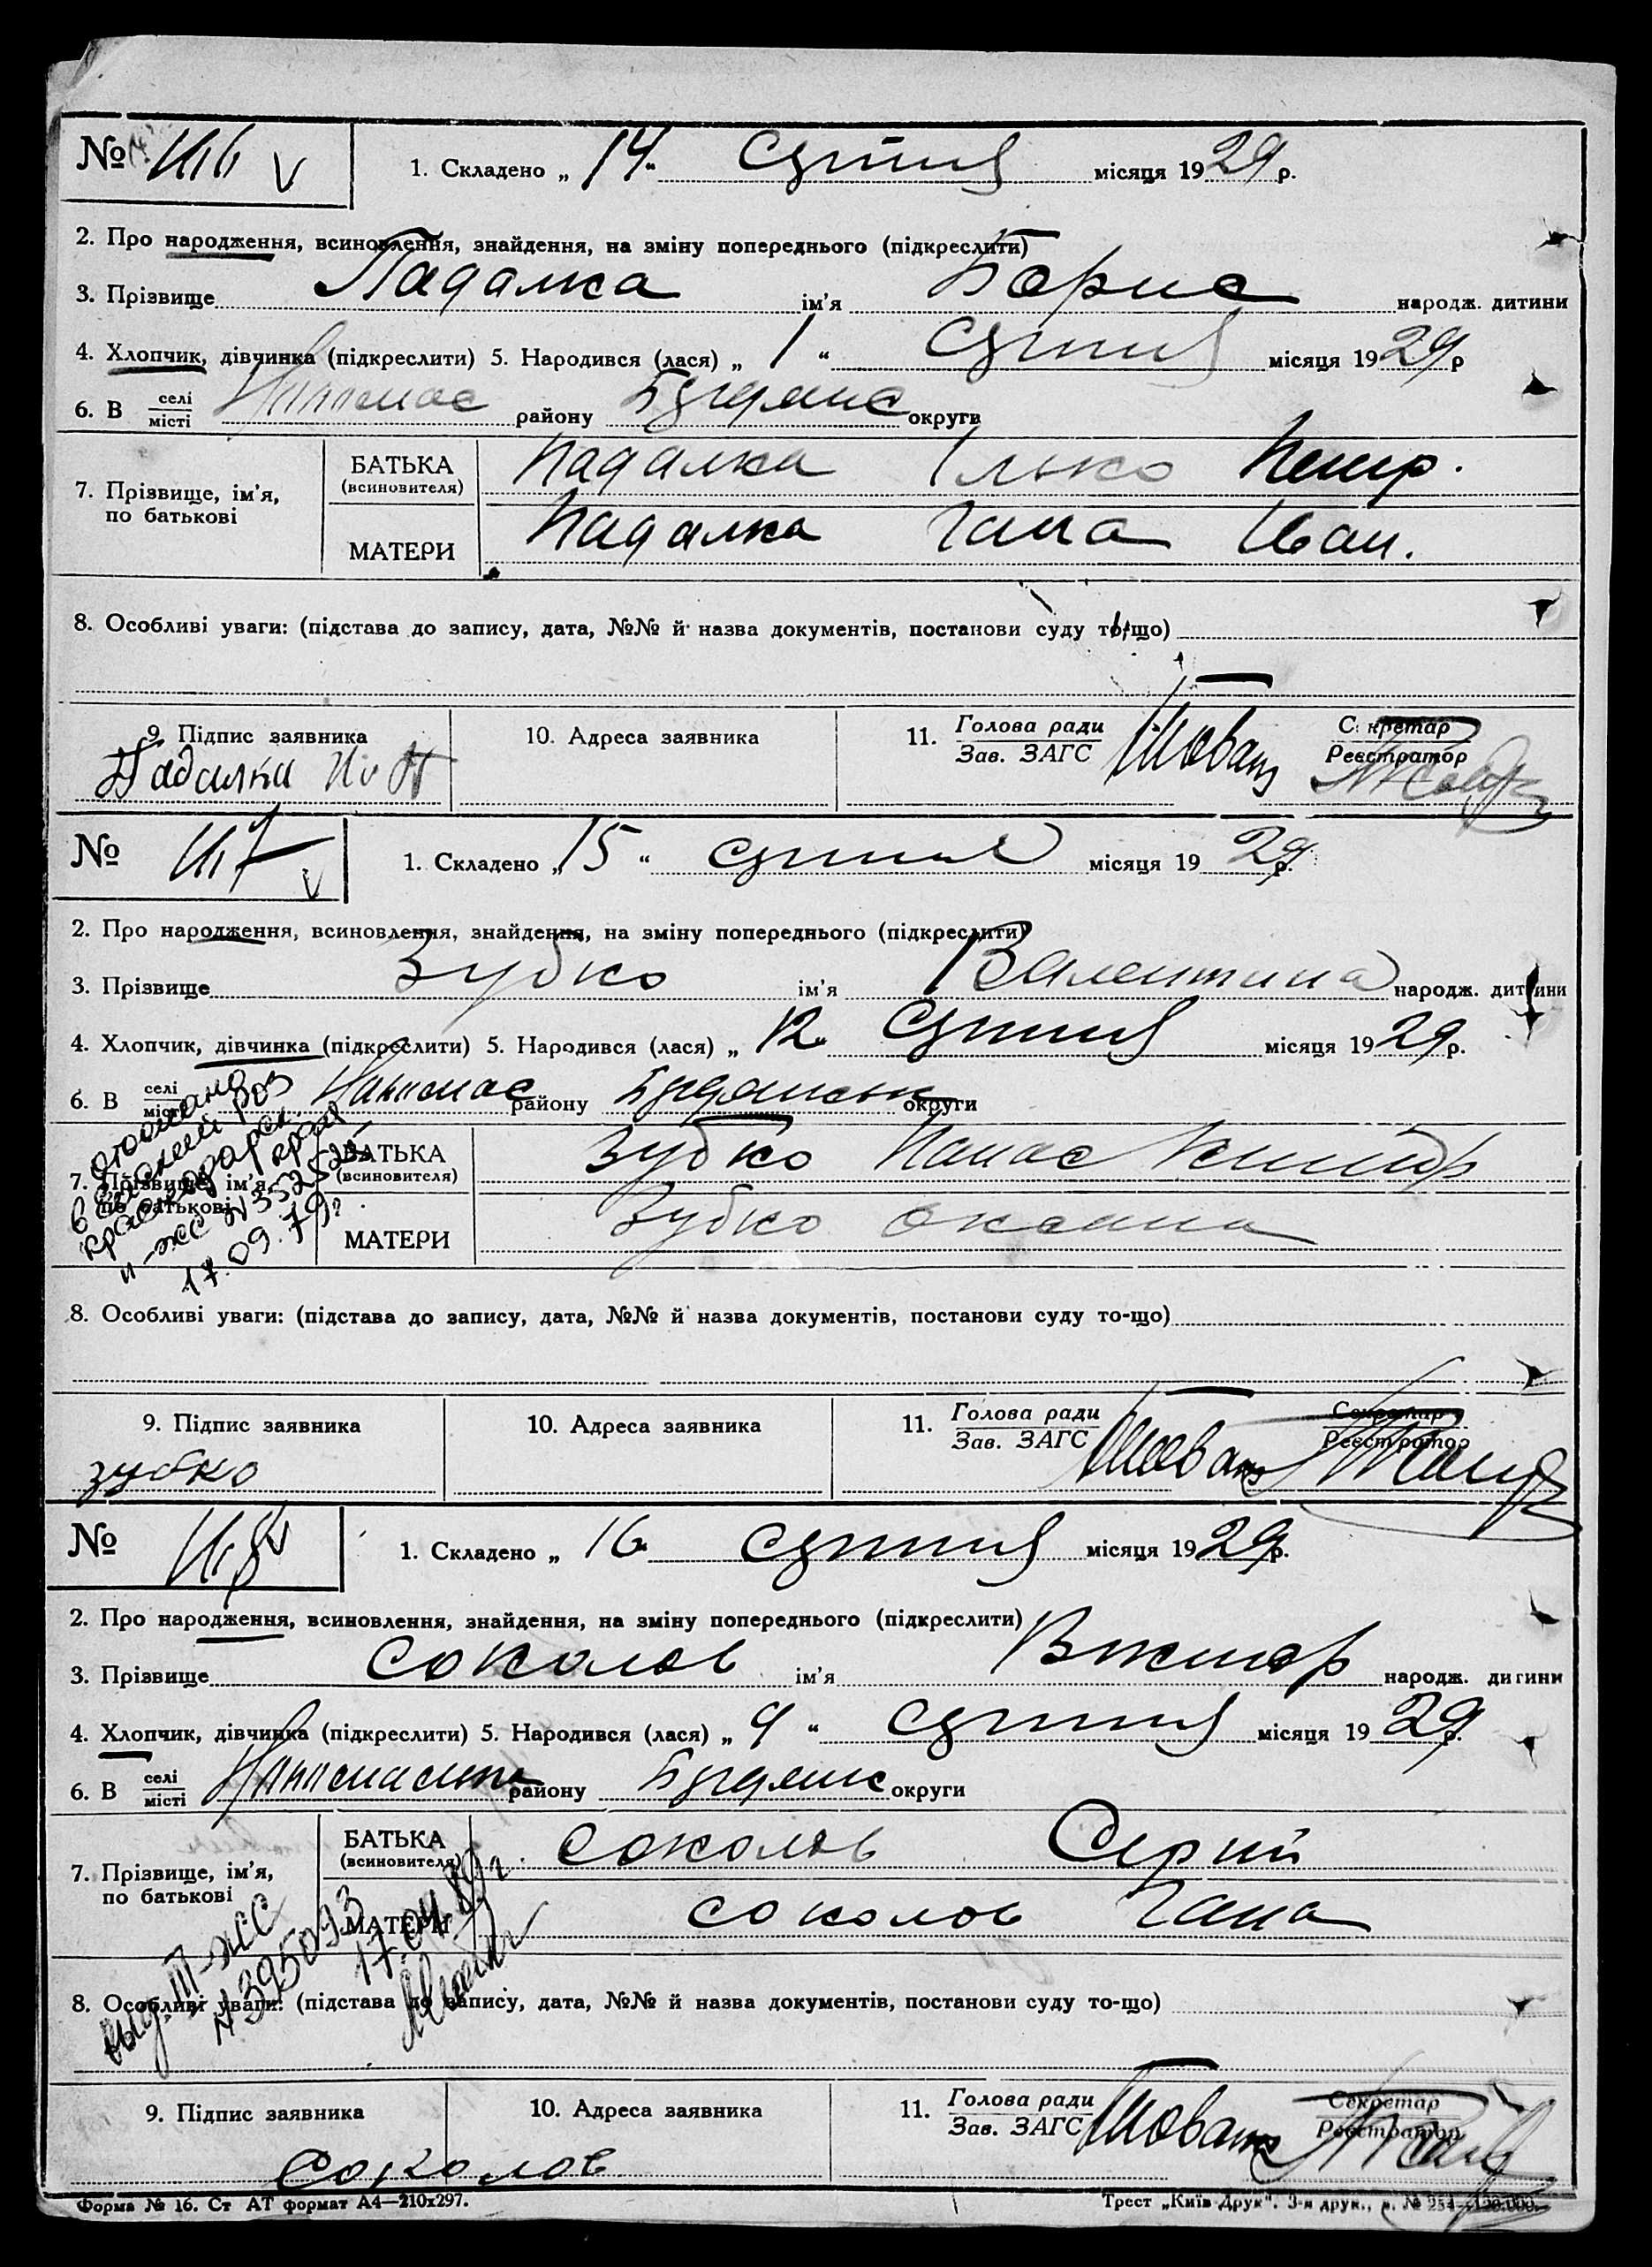 № 116 1. Складено „14“ Січня місяця 1929 р.
2. Про народження, всиновлення, знайдення, на зміну попереднього (підкреслити)
3. Прізвище Падалка ім'я Борис народж. дитини
4. Хлопчик, дівчинка (підкреслити) 5. Народився (лася) „1“ Січня місяця 1929 р
6. В селі місті району округи
7. Прізвище, ім'я, по батькові
БАТЬКА (всиновителя) Падалка Ілько Петр.
МАТЕРИ Падалка Гана Иван.
8. Особливі уваги: (підстава до запису, дата, №№ й назва документів, постанови суду то-що)
9. Підпис заявника 10. Адреса заявника 11. Голова ради Зав. ЗАГС Секретар Реєстратор
Падалка
№ 117 1. Складено „15“ січня місяця 1929 р.
2. Про народження, всиновлення, знайдення, на зміну попереднього (підкреслити)
3. Прізвище Зубко ім'я Валентина народж. дитини
4. Хлопчик, дівчинка (підкреслити) 5. Народився (лася) „12“ Січня місяця 1929 р.
6. В селі місті району округи
7. Прізвище, ім'я, по батькові
БАТЬКА (всиновителя) Зубко Панас
МАТЕРИ Зубко Оксана
17.09.79г
8. Особливі уваги: (підстава до запису, дата, №№ й назва документів, постанови суду то-що)
9. Підпис заявника 10. Адреса заявника 11. Голова ради Зав. ЗАГС Секретар Реєстратор
зубко
№ 118 1. Складено „16“ січня місяця 1929 р.
2. Про народження, всиновлення, знайдення, на зміну попереднього (підкреслити)
3. Прізвище Соколов ім'я Виктор народж. дитини
4. Хлопчик, дівчинка (підкреслити) 5. Народився (лася) „9“ Січня місяця 1929 р.
6. В селі місті району округи
7. Прізвище, ім'я, по батькові
БАТЬКА (всиновителя) Соколов Сергій
МАТЕРИ Соколов Гана
выд. III-ЖС
N 395093
17.04.89г.
8. Особливі уваги: (підстава до запису, дата, №№ й назва документів, постанови суду то-що)
9. Підпис заявника 10. Адреса заявника 11. Голова ради Зав. ЗАГС Секретар Реєстратор
Соколов
Форма № 16. Ст АТ формат А4—210х297. Трест „Київ-Друк“. 3-я друк., з. № 254—120.000.